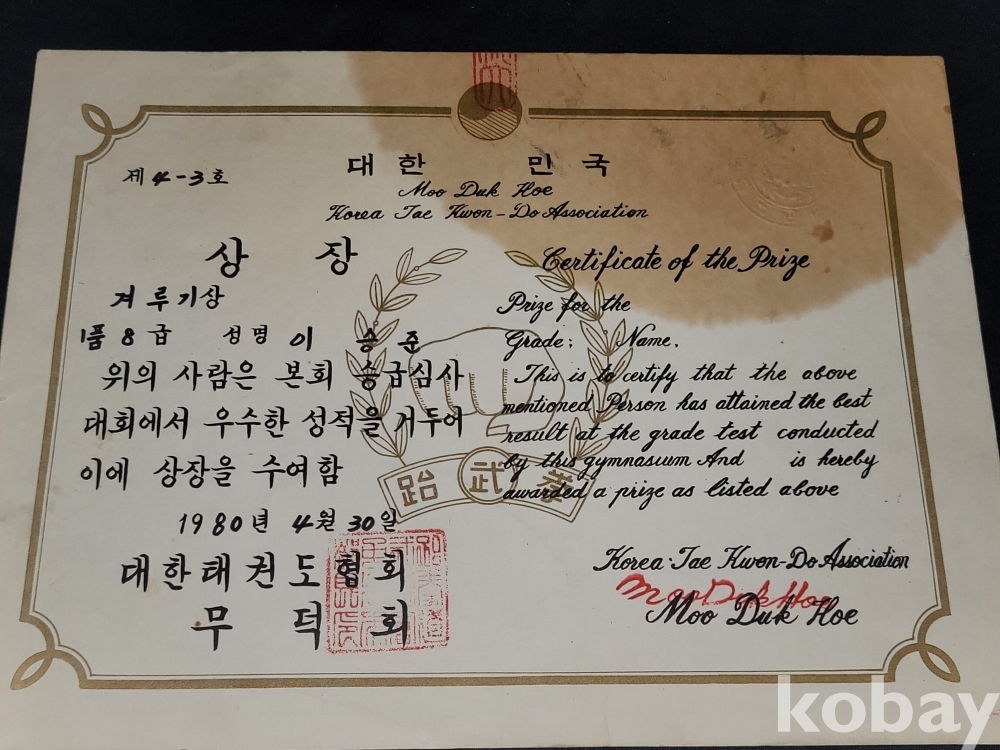 제 4-3호
대한 민국
Moo Duk Hoe
Korea Tae Kwon-Do Association
상 장
겨루기상
1품 8급 성명 이 승 준
위의 사람은 본회 승급심사
대회에서 우수한 성적을 거두어
이에 상장을 수여함
1980년 4월 30일
대한태권도협회
무덕회
Certificate of the Prize
Prize for the
Grade; Name,
This is to certify that the above
mentioned Person has attained the best
result at the grade test conducted
by this gymnasium And is hereby
awarded a prize as listed above
Korea Tae Kwon-Do Association
Moo Duk Hoe
Moo Duk Hoe
跆 武 拳
kobay